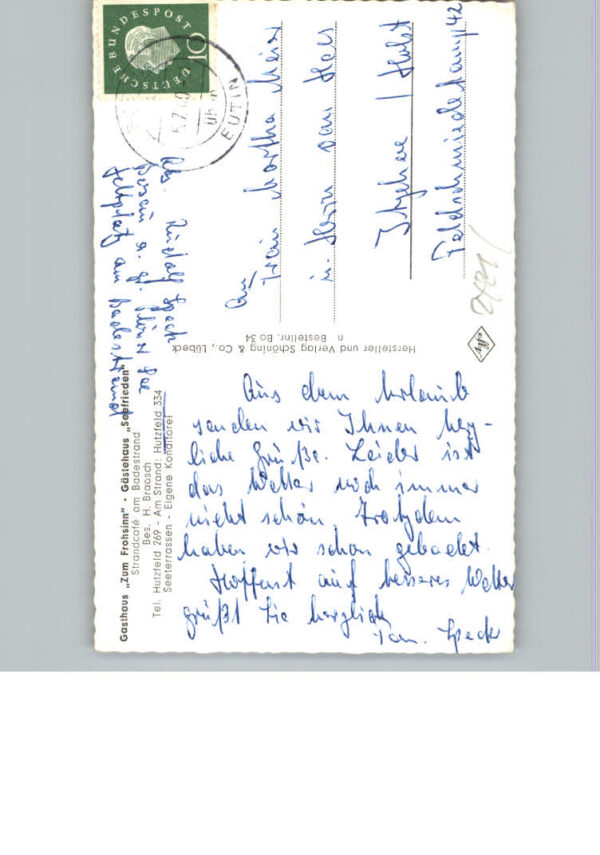 Gasthaus „Zum Frohsinn“ · Gästehaus „Seefrieden“
Strandcafé am Badestrand
Bes. H. Braasch
Tel. Hutzfeld 269 - Am Strand: Hutzfeld 334
Seeterrassen - Eigene Konditorei
Aus dem Urlaub
senden wir Ihnen herz-
liche Grüße. Leider ist
das Wetter noch immer
nicht schön. Trotzdem
haben wir schon gebadet.
Hoffend auf besseres Wetter
grüßt Sie herzlich
Fam. Speck
Hersteller und Verlag Schöning & Co., Lübeck
Bestellnr. Bo 34
DEUTSCHE BUNDESPOST
10
EUTIN
Abs. Rudolf Speck
Bosau a. gr. Plöner See
Zeltplatz am Badestrand
An
Frau Martha Meier
u. Herrn van Hees
Itzehoe / Holst
Feldschmiedekamp 42